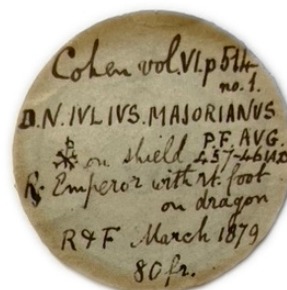 Cohen vol. VI. p 514
no. 1.
D. N. IVLIVS. MAJORIANVS
P. F. AVG.
☧ on shield 457-461 A.D
R. Emperor with rt. foot
on dragon
R & F March 1879
80 fr.